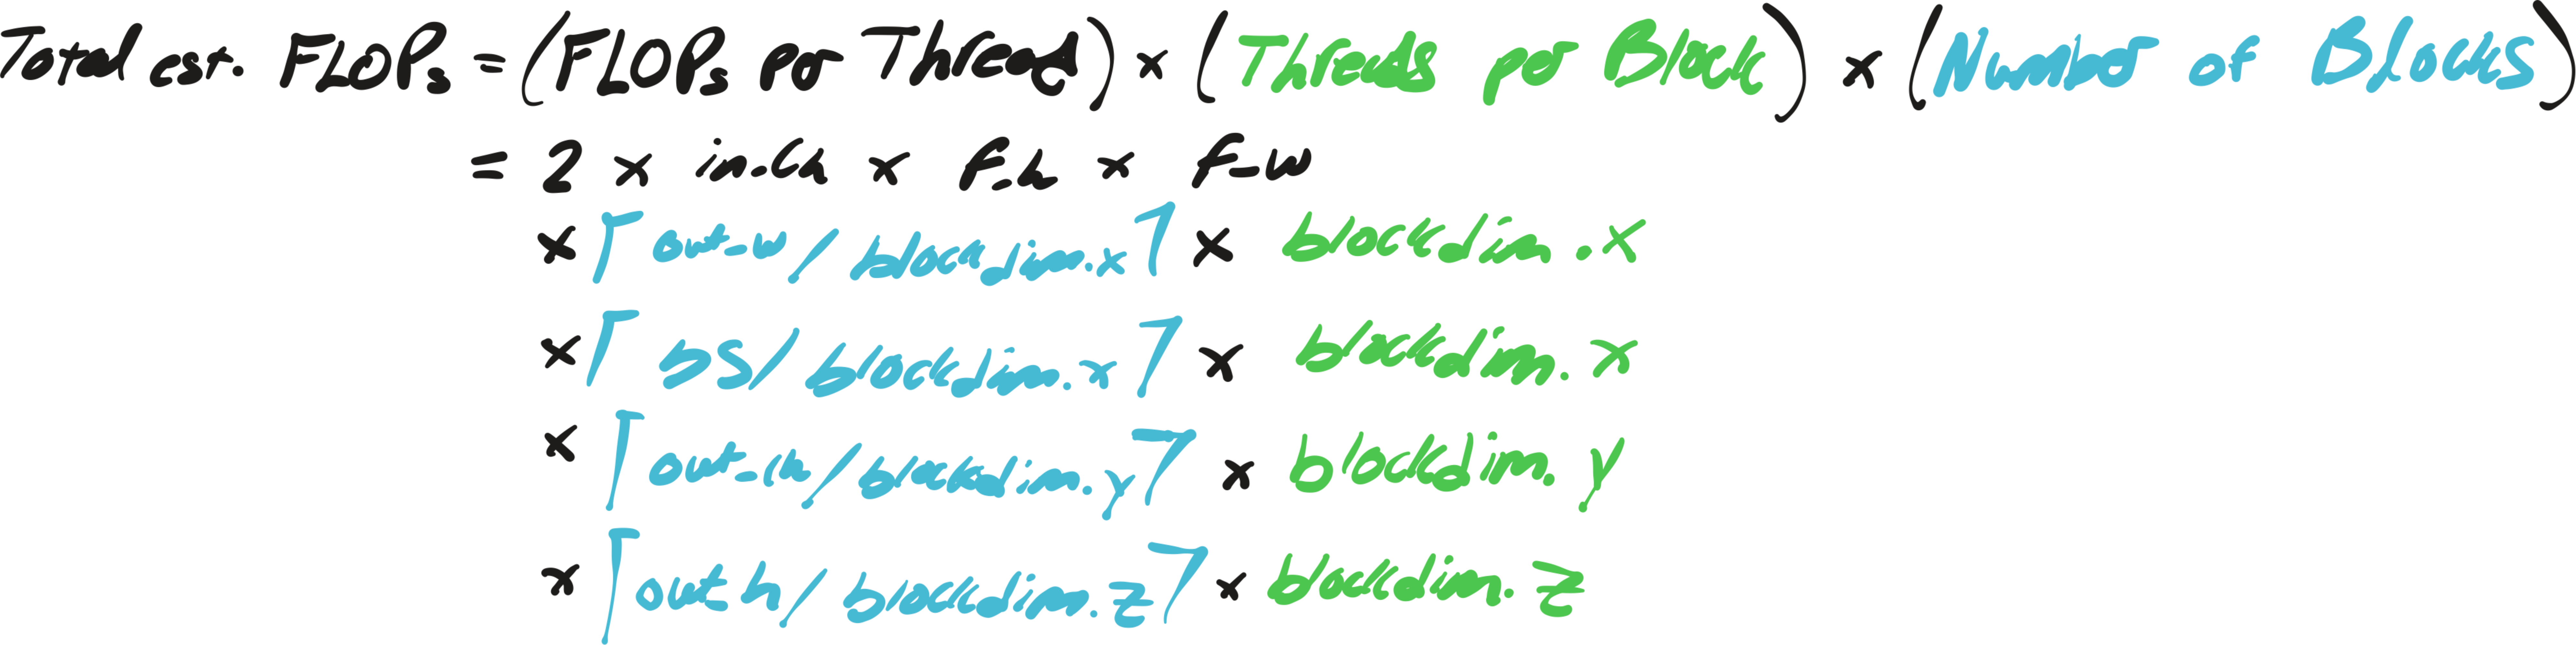 Total est. FLOPs = (FLOPs per Thread) × (Threads per Block) × (Number of Blocks)
= 2 × in_ch × f_h × f_w
× ⌈out_w / blockdim.x⌉ × blockdim.x
× ⌈bs / blockdim.x⌉ × blockdim.x
× ⌈out_ch / blockdim.y⌉ × blockdim.y
× ⌈out h / blockdim.z⌉ × blockdim.z